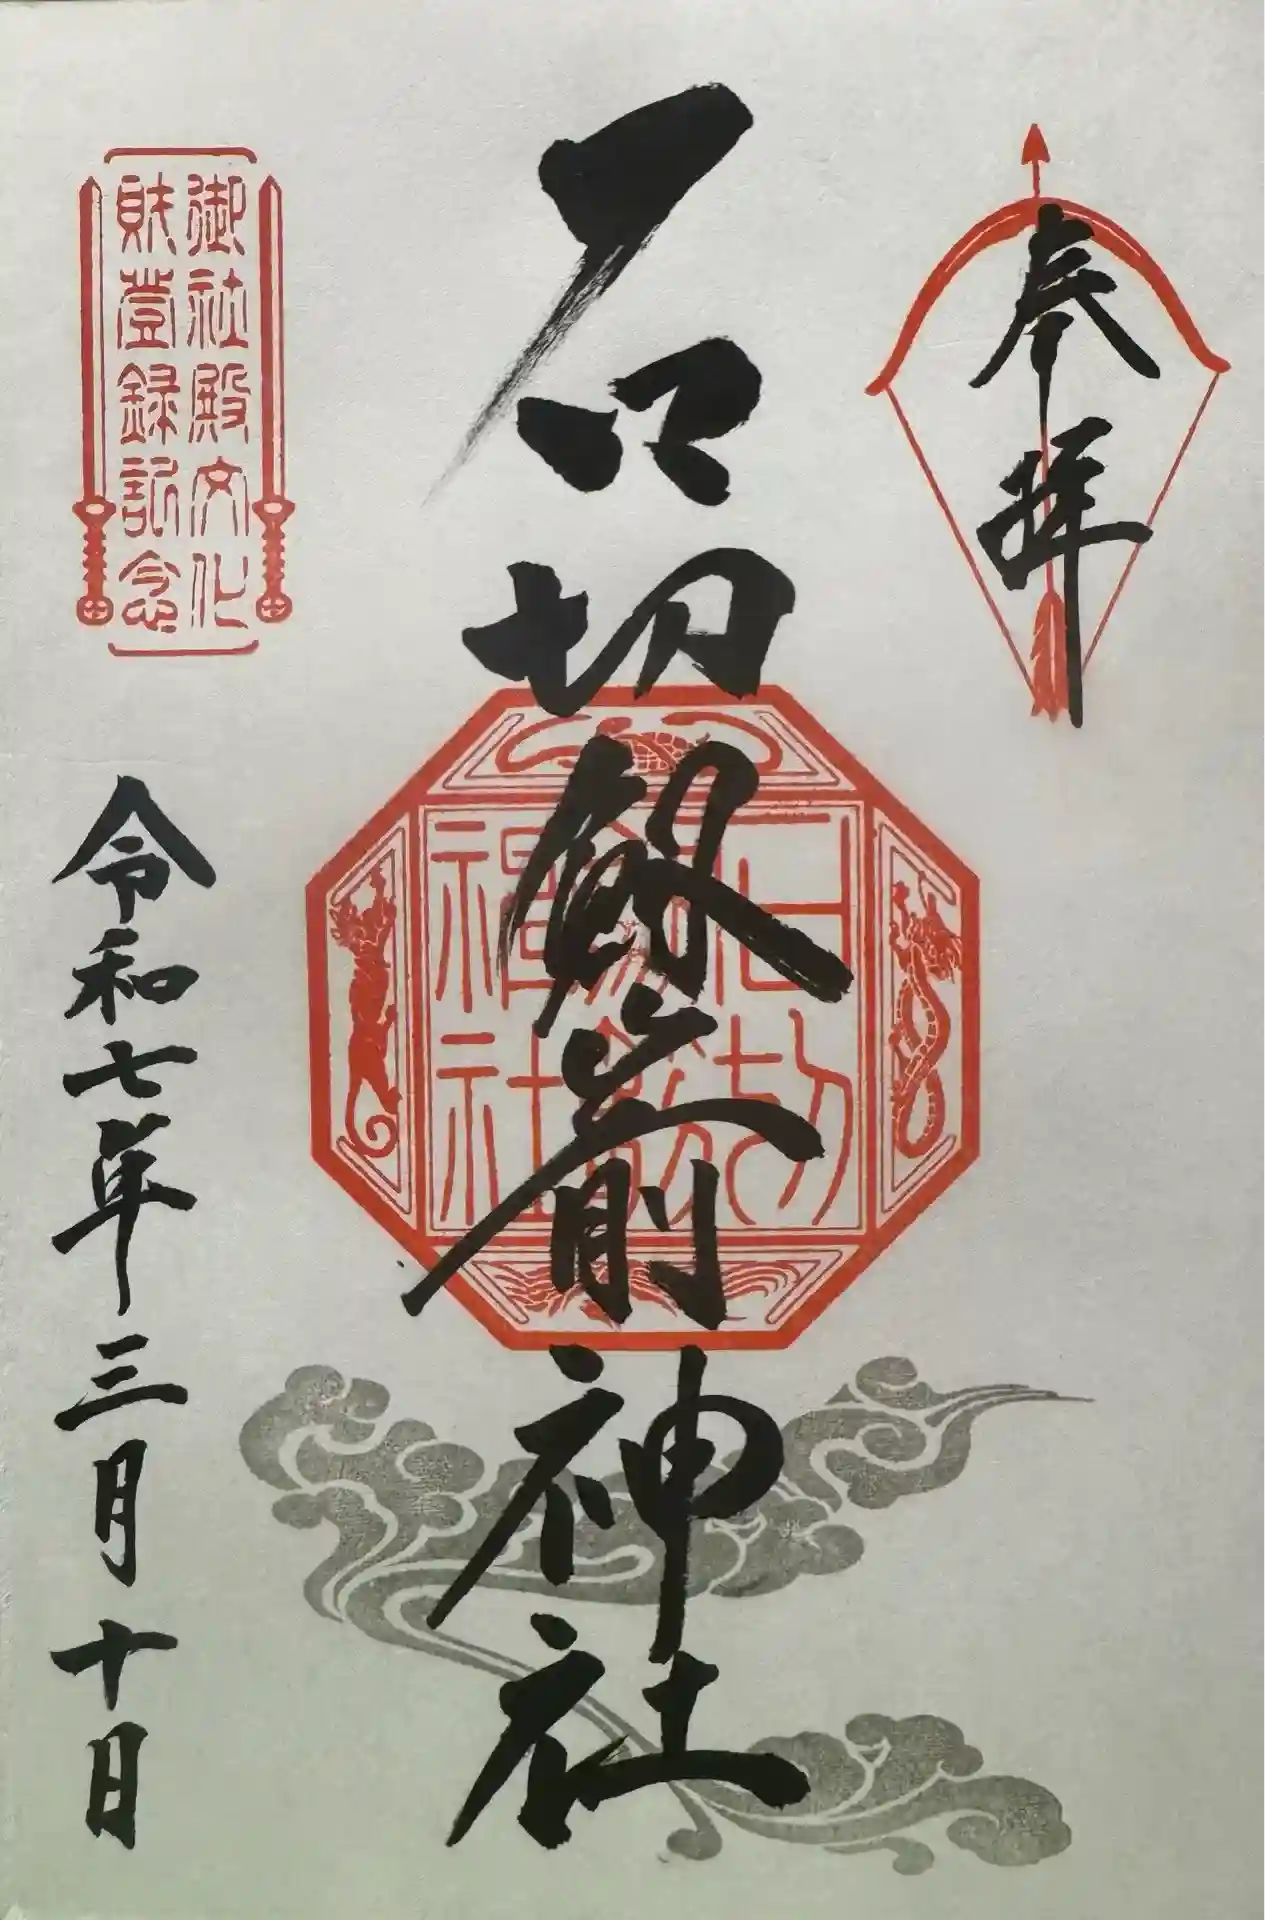 奉拝
石切劔箭神社
石切劔箭福社
御社殿文化
財登録記念
令和七年三月十日